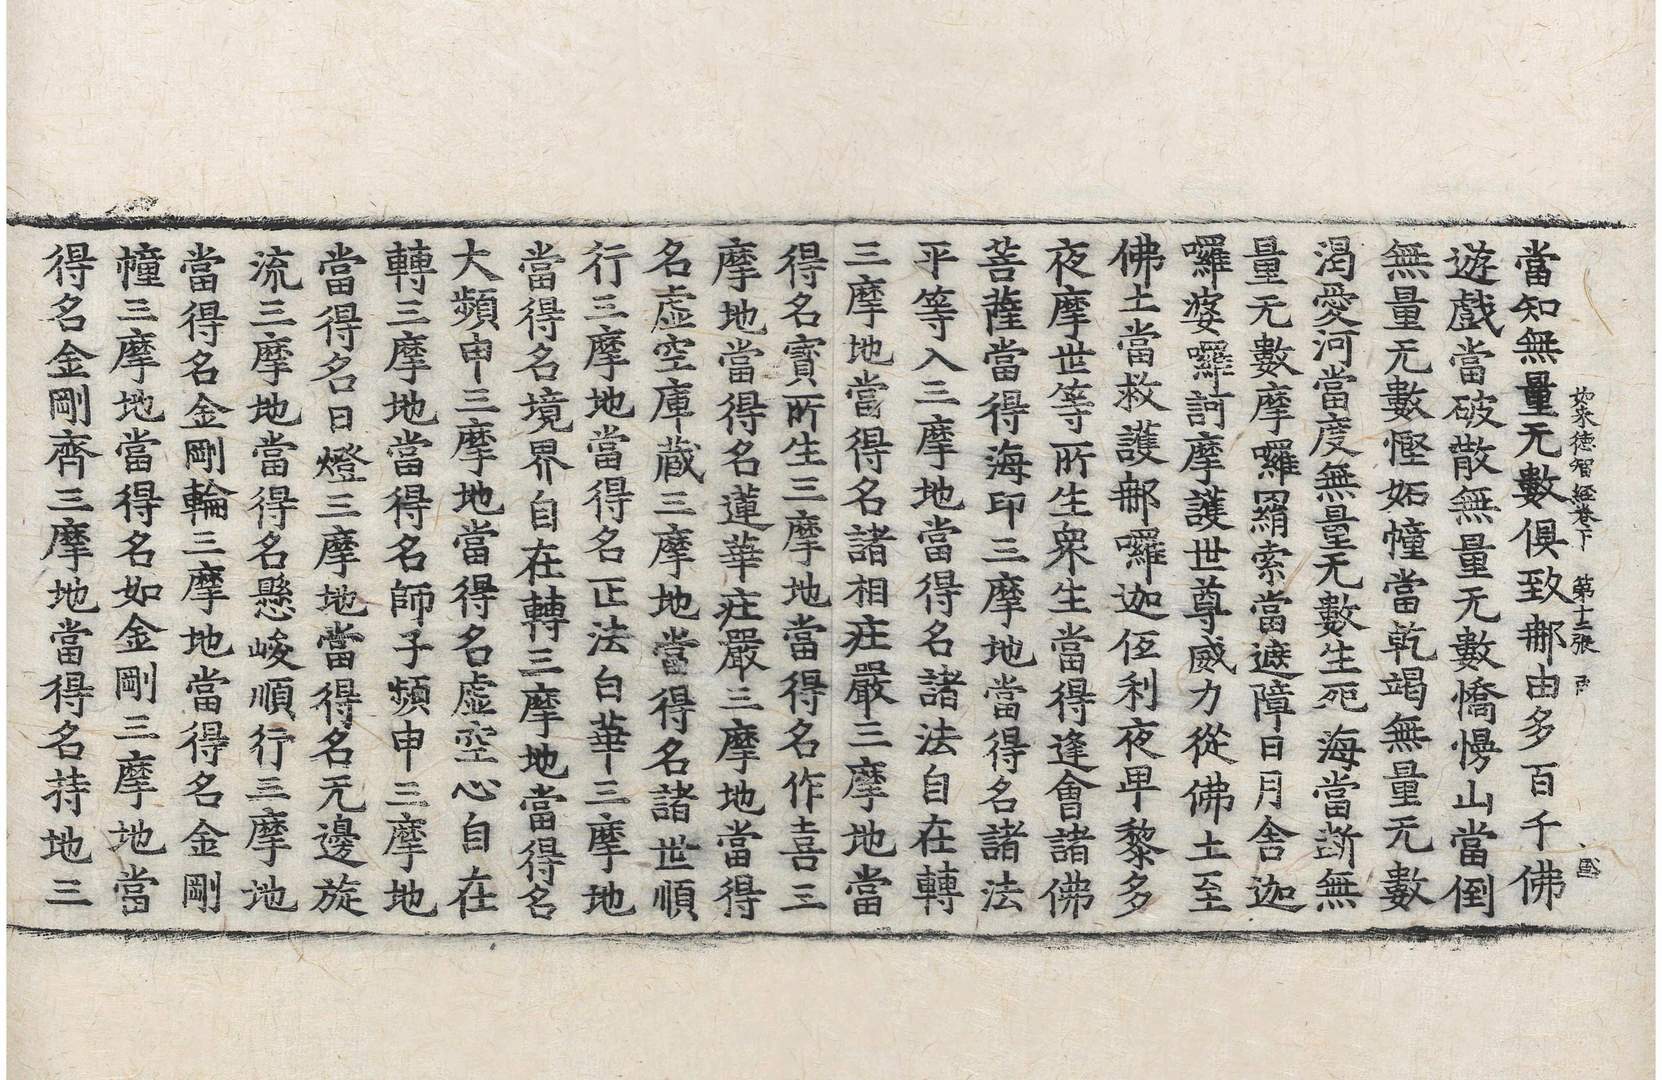 如来徳智經卷下 第十二張
當知無量无數俱致𨚗由多百千佛
遊戲當破散無量无數憍慢山當倒
無量无數慳妬幢當乾竭無量无數
渴愛河當度無量无數生死海當斷無
量无數摩囉羂索當遮障日月舍迦
囉婆囉訶摩護世尊威力從佛土至
佛土當救護𨚗囉迦伍利夜卑黎多
夜摩世等所生衆生當得逢會諸佛
菩薩當得海印三摩地當得名諸法
平等入三摩地當得名諸法自在轉
三摩地當得名諸相疘嚴三摩地當
得名寶所生三摩地當得名作喜三
摩地當得名蓮華疘嚴三摩地當得
名虛空庫蔵三摩地當得名諸世順
行三摩地當得名正法白華三摩地
當得名境界自在轉三摩地當得名
大頻申三摩地當得名虛空心自在
轉三摩地當得名師子頻申三摩地
當得名日燈三摩地當得名无邊旋
流三摩地當得名懸峻順行三摩地
當得名金剛輪三摩地當得名金剛
幢三摩地當得名如金剛三摩地當
得名金剛齊三摩地當得名持地三